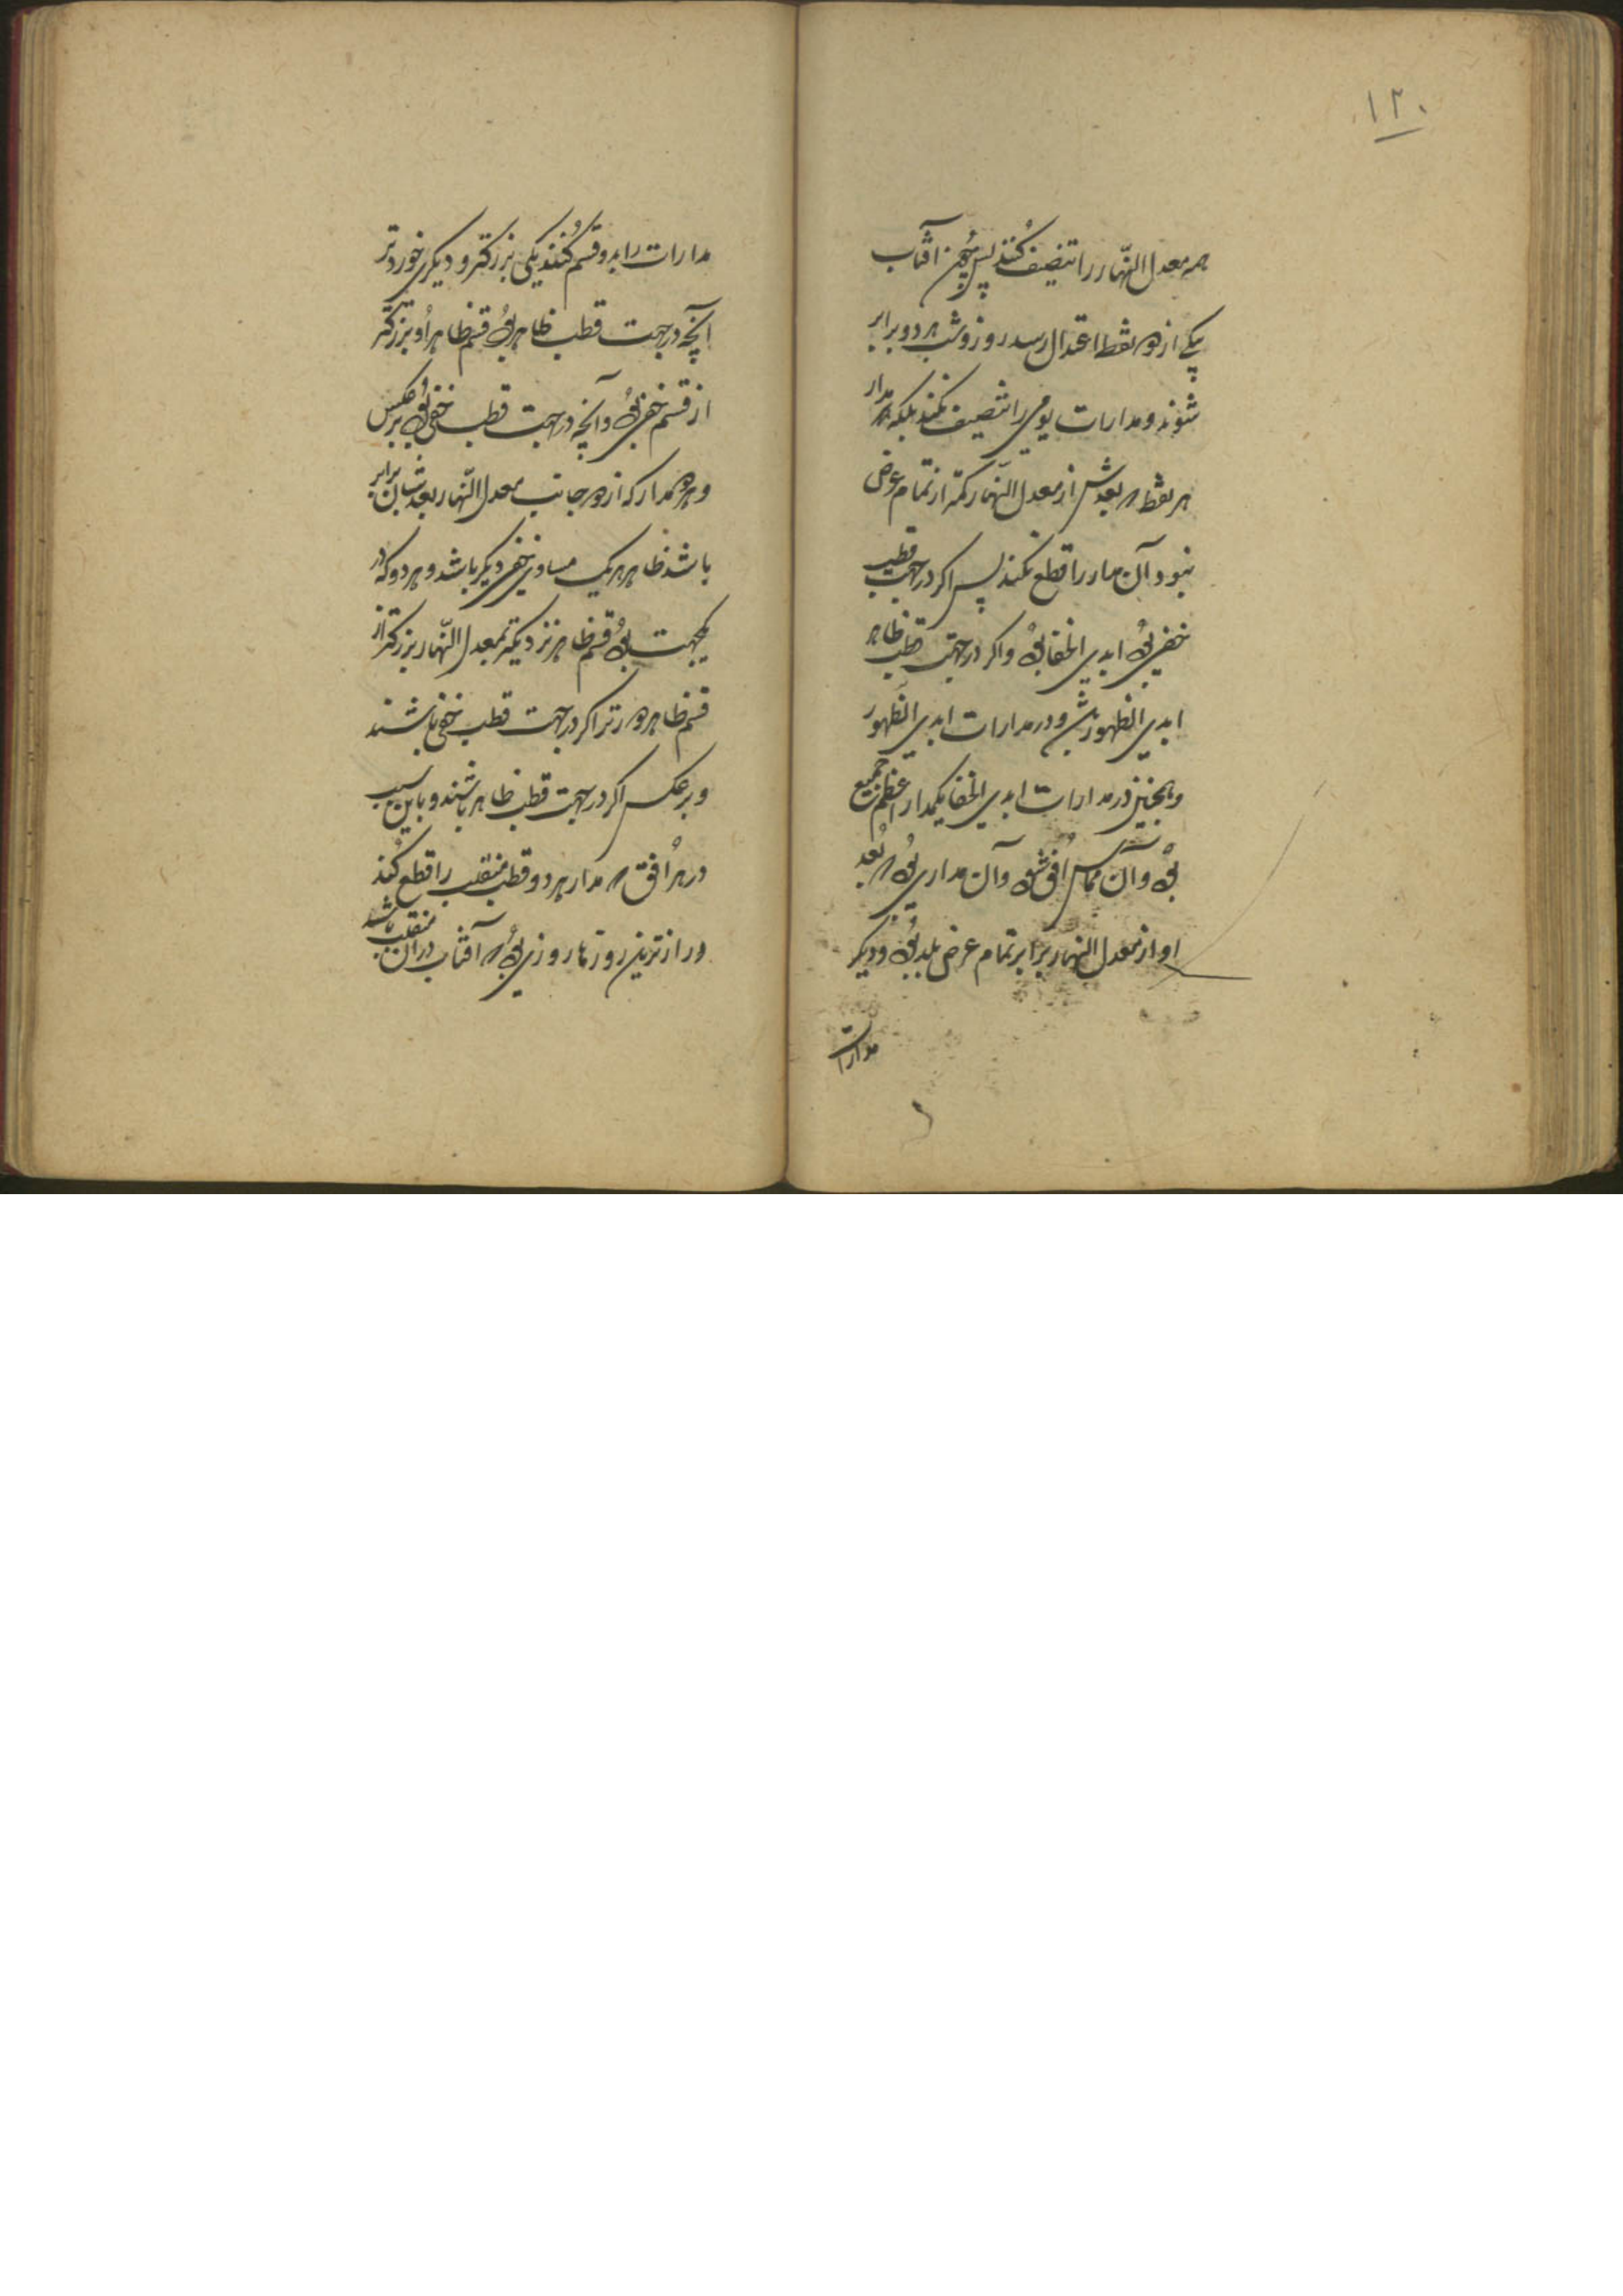 ۱۲۰
همه معدل النّهار را تنصیف کُنند پس چُون آفتاب
یکی از دو نقطه اعتدال رسد روز و شب هر دو برابر
شوند و مدارات یومی را تنصیف نکند بلکه هر مدار
هر نقطه که بعدش از معدل النّهار کمتر از تمام عرض
نبود آن مدار را قطع نکند پس اگر در جهت قطب
خفی بُود ابدی الخفا بُود و اگر در جهت قطب ظاهر
ابدی الظهور باشد و در مدارات ابدی الظهور
و همچنین در مدارات ابدی الخفا یکمدار اعظم جمیع
بُود و آن مماس اُفق شود و آن مداری بُود که بُعد
او از معدل النهار برابر تمام عرض بلد بُود و دیگر
مدارات
مدارات را بدو قسم کُنند یکی بزرگتر و دیگری خوردتر
آنچه در جهت قطب ظاهر بُود قسم ظاهر اُو بزرگتر
از قسم خفی بُود و آنچه در جهت قطب خفی بُود برعکس
و هر دو مدار که از دو جانب معدل النّهار بعدشان برابر
باشد ظاهر هر یک مساوی خفی دیگر باشد و هر دو که در
یکجهت بُود قسم ظاهر نزدیکتر بمعدل النّهار بزرگتر از
قسم ظاهر دورتر اگر در جهت قطب خفی باشند
و برعکس اگر در جهت قطب ظاهر باشند و باین سبب
در هر اُفق که مدار هر دو قطب منقلب را قطع کُند
درازترین روزها روزی بُود که آفتاب در آن منقلب باشد